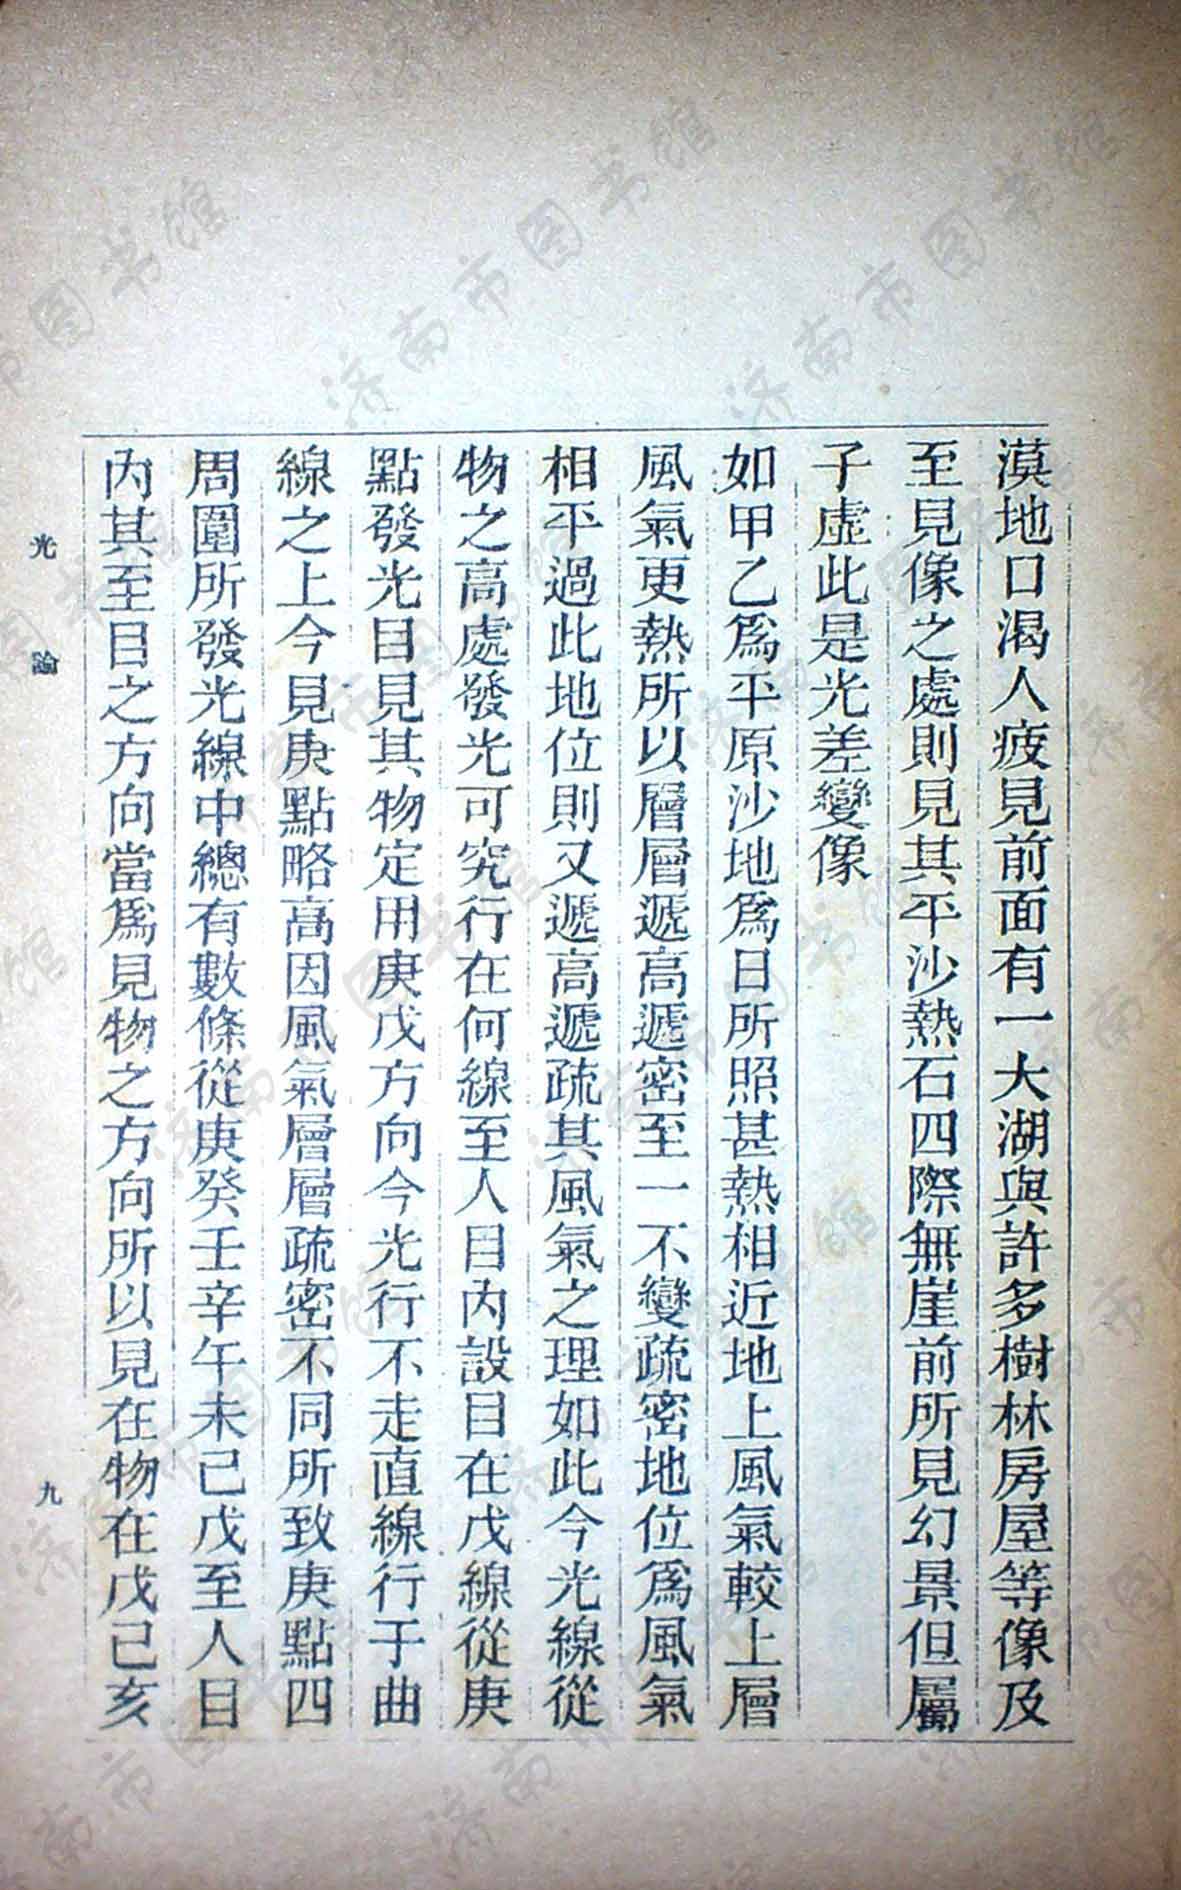 漠地口渴人疲見前面有一大湖與許多樹林房屋等像及
至見像之處則見其平沙熱石四際無崖前所見幻景但屬
子虛此是光差變像
如甲乙爲平原沙地爲日所照甚熱相近地上風氣較上層
風氣更熱所以層層遞高遞密至一不變疏密地位爲風氣
相平過此地位則又遞高遞疏其風氣之理如此今光線從
物之高處發光可究行在何線至人目內設目在戊線從庚
點發光目見其物定用庚戊方向今光行不走直線行于曲
線之上今見庚點略高因風氣層層疏密不同所致庚點四
周圍所發光線中總有數條從庚癸壬辛午未己戊至人目
內其至目之方向當爲見物之方向所以見在物在戊己亥
光論
九
济南市图书馆